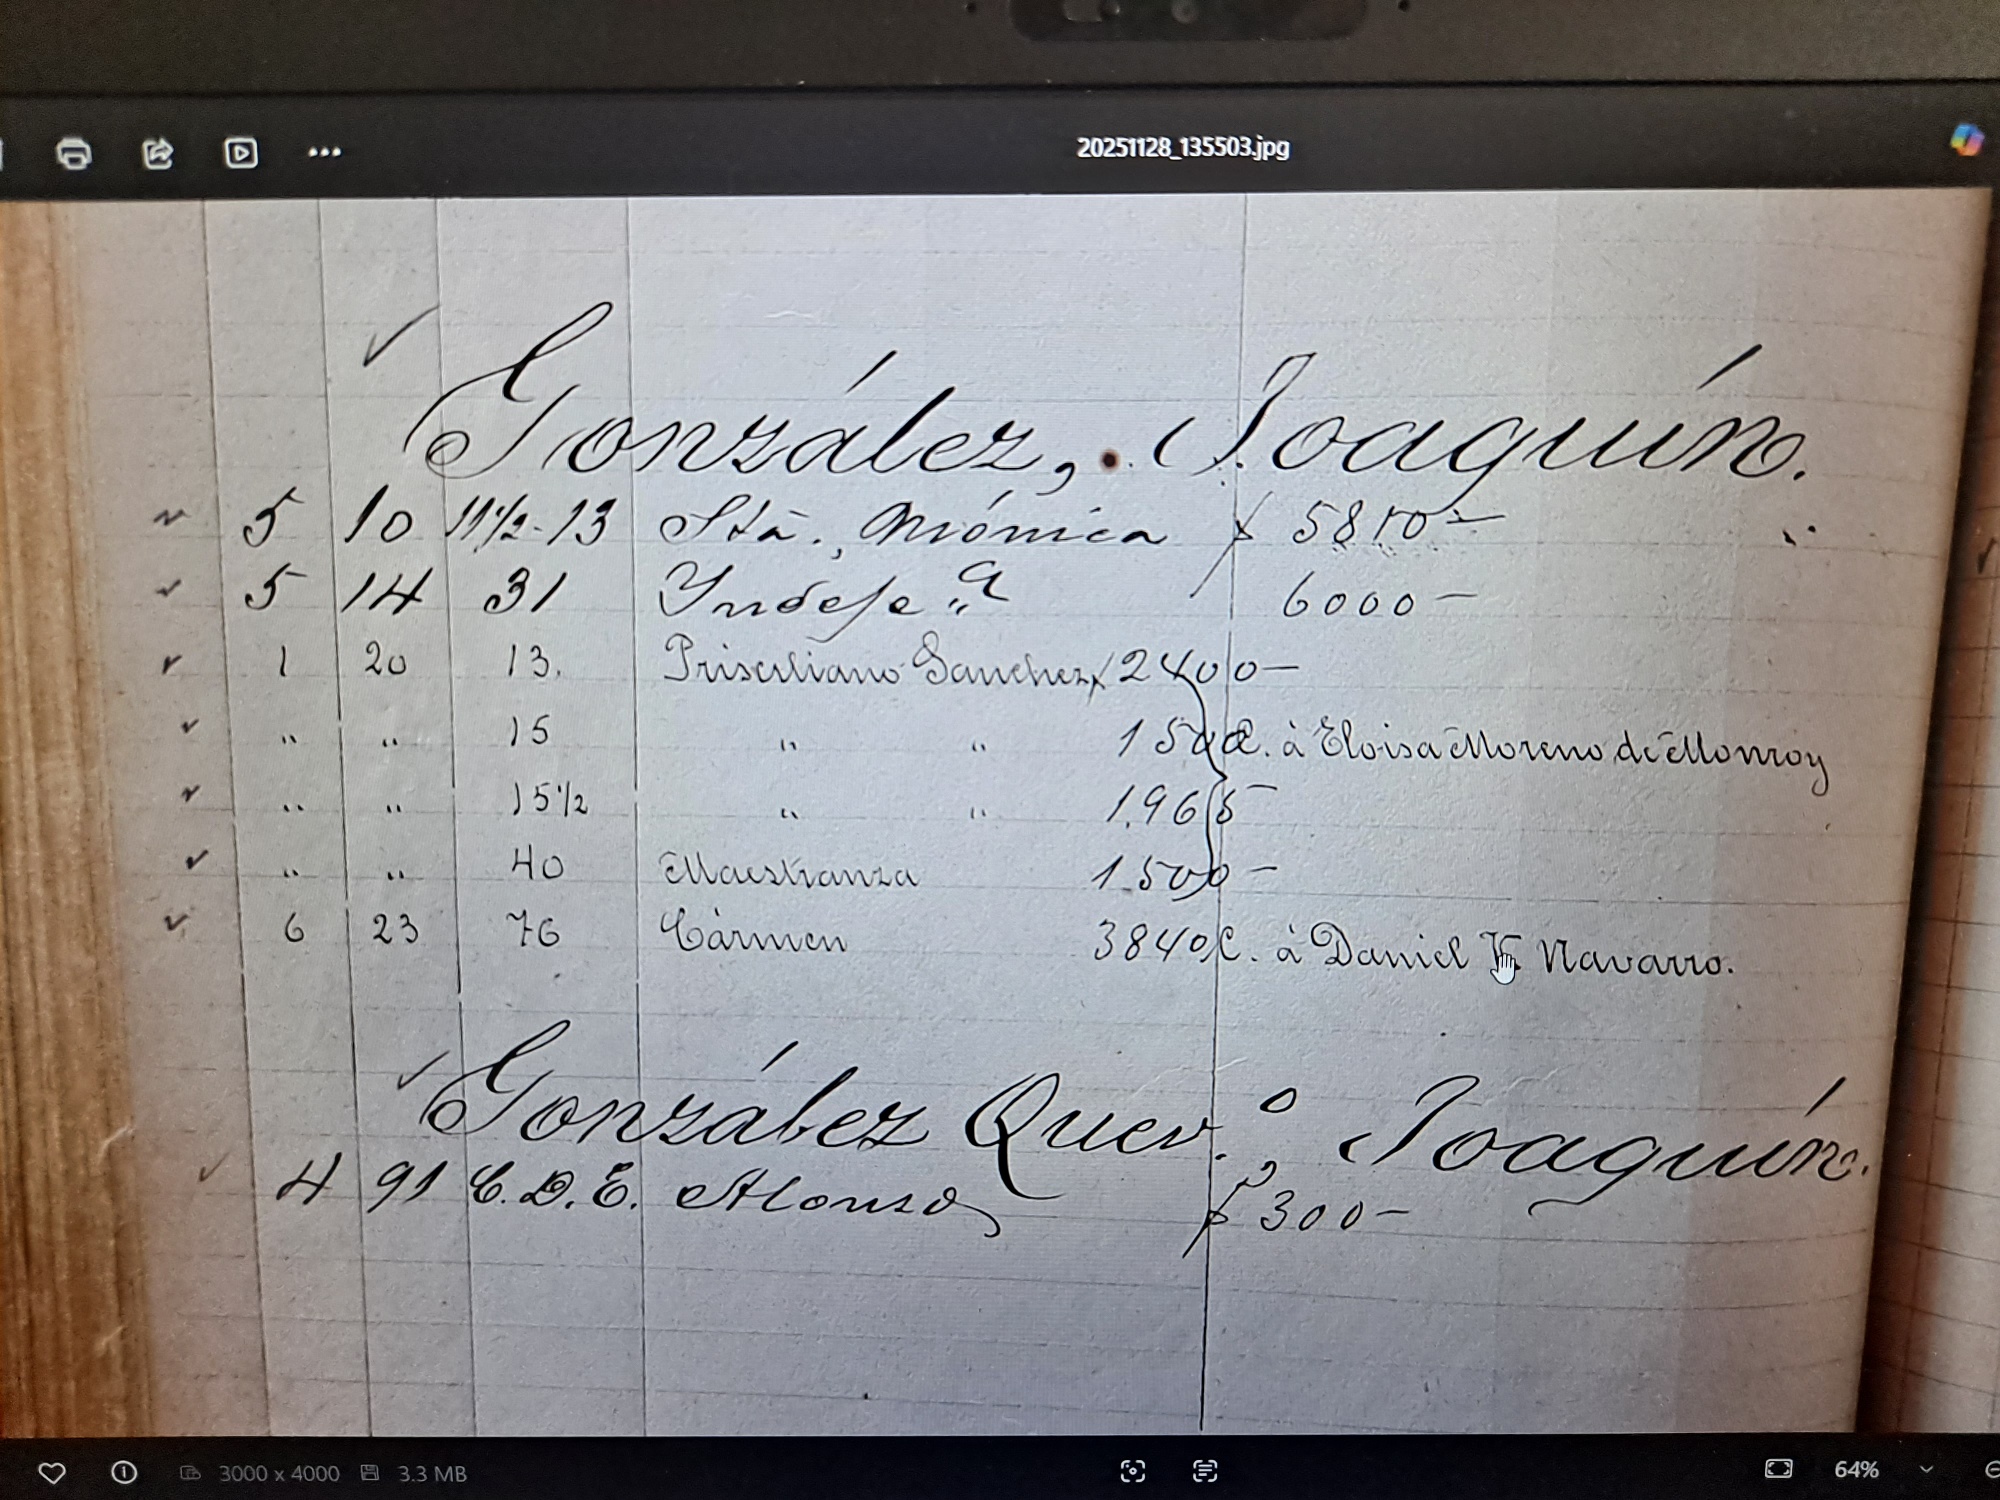 20251128_135503.jpg
González, Joaquín.
5 10 11½-13 Sta. Mónica $ 5810-
5 14 31 Yndepe.a 6000-
1 20 13. Prisciliano Sanchez $ 2400-
" " 15 " " 1500 C. à Eloisa Moreno de Monroy
" " 15½ " " 1.965-
" " 40 Maestranza 1.500-
6 23 76 Cármen 3840 C. à Daniel Navarro.
González Quev.o, Joaquín.
4 91 C.D.E. Alonso $ 300-
3000 x 4000 3.3 MB 64%